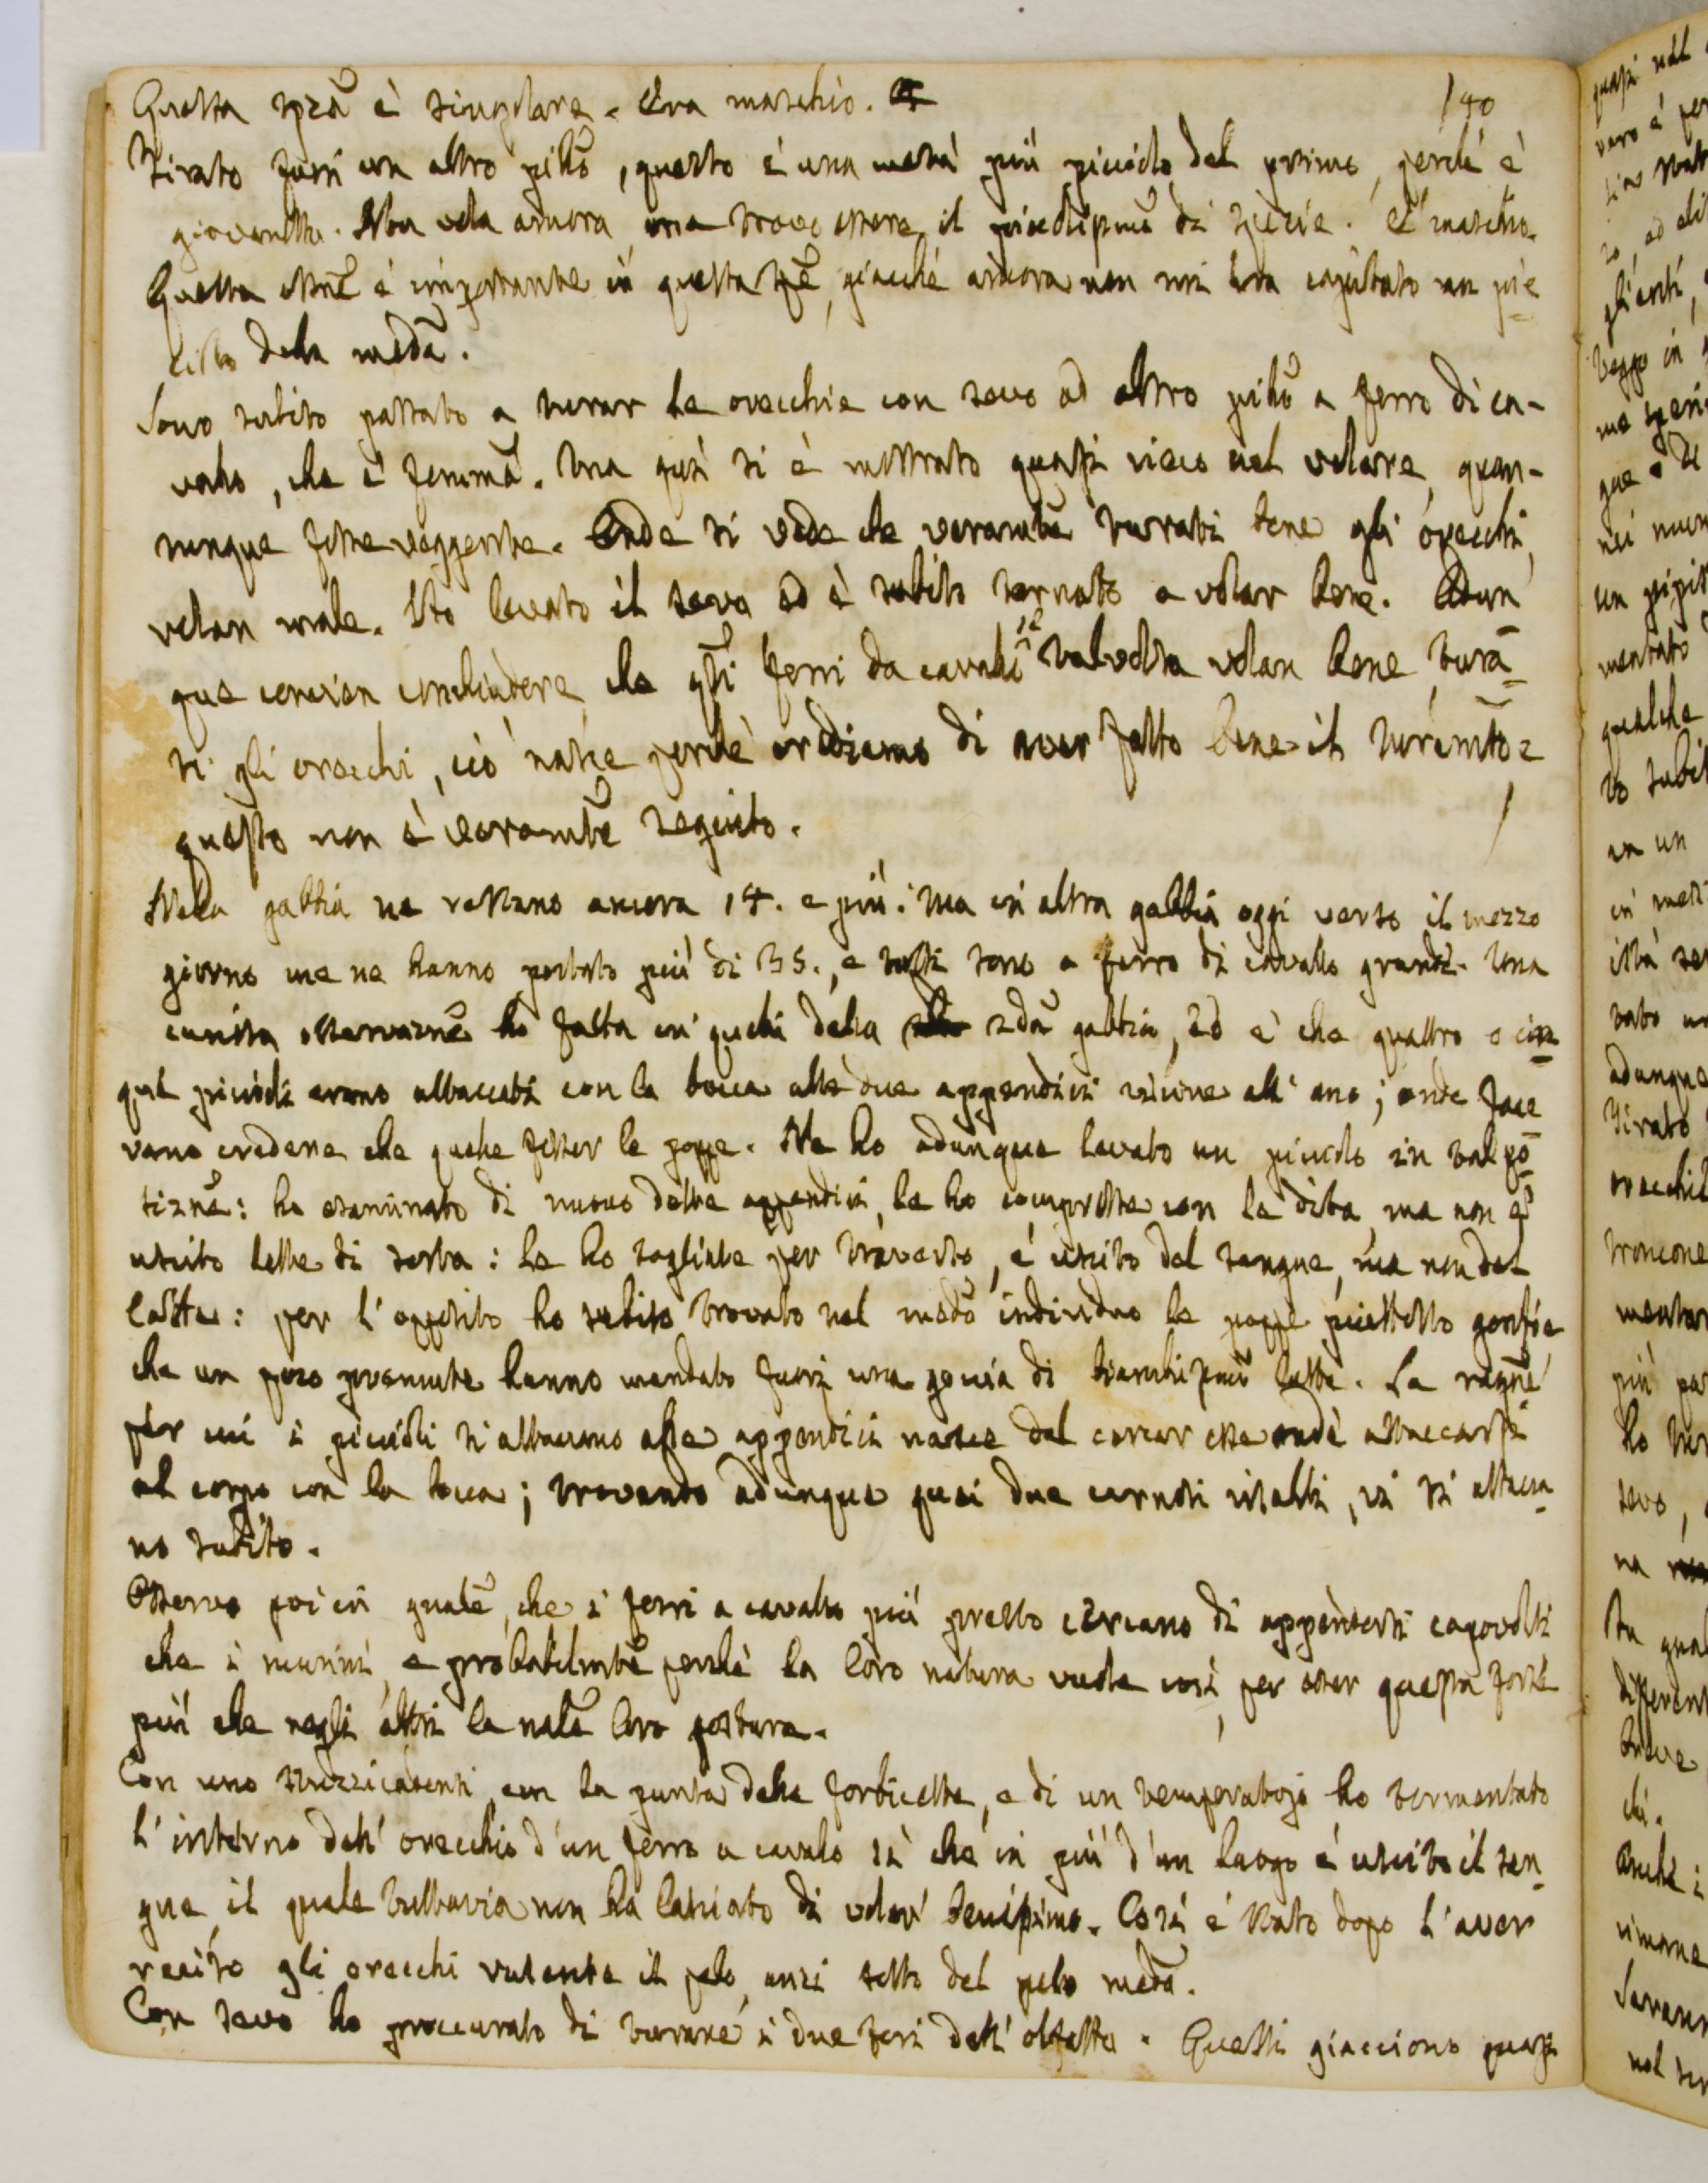 Questa spzã è singolare. Era maschio.
140
Tirato fuori un altro pillõ, questo è una metà più piccolo del primo, perchè è
giovanetto. Non vola ancora, ma trovo essere il piccolissimõ di specie. È maschio.
Questa ossnẽ è importante in questa spẽ, giacchè ancora non mi era capitato un pic
ciolo della medã.
Sono subito passato a turar le orecchie con sevo ad altro pillõ a ferro di ca-
vallo, che è femmã. Ma quì si è mostrato quassi cieco nel volare, quan-
tunque fosse veggente. Onde si vede che veramtẽ turrati bene gli orecchi,
volan male. Ho levato il sevo ed è subito tornato a volar bene. Adun
que convien conchiudere, che qsti ferri da cavallo se talvolta volan bene, turã
ti gli orecchi, ciò nasce perchè crediamo di aver fatto bene il turamto e
questo non è veramtẽ seguito.
Nella gabbia ne restano ancora 14. e più: ma in altra gabbia oggi verso il mezzo
giorno me ne hanno portato più di 35., e tutti sono a ferro di cavallo grandi. Una
curiosa osservaznẽ ho fatta in quelli della 2dã gabbia, ed è che quattro o cin
que piccioli erano attaccati con la bocca alle due appendici vicine all'ano; onde face
vano credere che quelle fosser le poppe. Ne ho adunque levato un piccolo in tal põ
siznẽ: ho esaminato di nuovo dette appendici, le ho compresse con le dita, ma non è
uscito latte di sorta: le ho tagliate per traverso, è uscito del sangue, ma non del
latte: per l'opposito ho subito trovato nel medõ individuo le poppe piuttosto gonfie,
che un poco premute hanno mandato fuori una goccia di bianchissmõ latte. La ragnẽ
per cui i piccioli si attaccano alle appendici nasce dal cercar esse onde attaccarsi
al corpo con la bocca; trovando adunque quei due carnosi risalti, vi si attacca
no subito.
Osservo poi in gnalẽ, che i ferri a cavallo più presto cercano di appendersi capovolti
che i murini, e probabilmtẽ perchè la loro natura vuole così, per esser questa forse
più che negli altri la nalẽ loro postura.
Con uno stuzzicadenti, con la punta delle forbicette, e di un temperatojo ho tormentato
l'interno dell'orecchio d'un ferro a cavalo sì che in più d'un luogo è uscito il san
gue, il quale tuttavia non ha lasciato di volar benissimo. Così è stato dopo l'aver
reciso gli orecchi rasente il pelo, anzi sotto del pelo medã.
Con sevo ho proccurato di turare i due fori dell'olfatto. Questi giacciono quasi